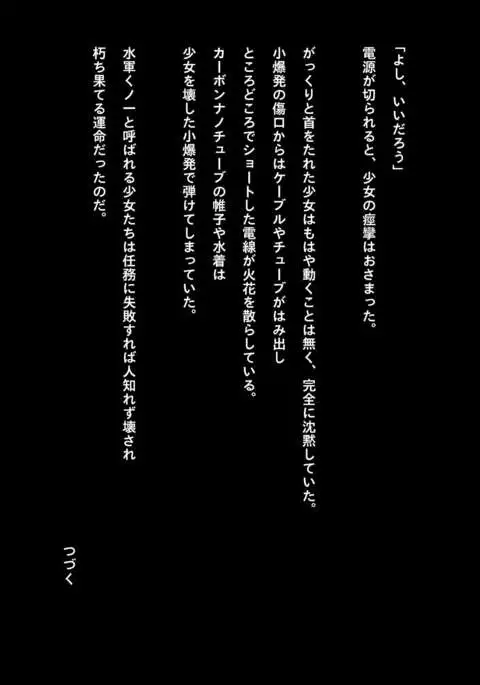 「よし、いいだろう」
電源が切られると、少女の痙攣はおさまった。
がっくりと首をたれた少女はもはや動くことは無く、完全に沈黙していた。
小爆発の傷口からはケーブルやチューブがはみ出し
ところどころでショートした電線が火花を散らしている。
カーボンナノチューブの帷子や水着は
少女を壊した小爆発で弾けてしまっていた。
水軍くノ一と呼ばれる少女たちは任務に失敗すれば人知れず壊され
朽ち果てる運命だったのだ。
つづく